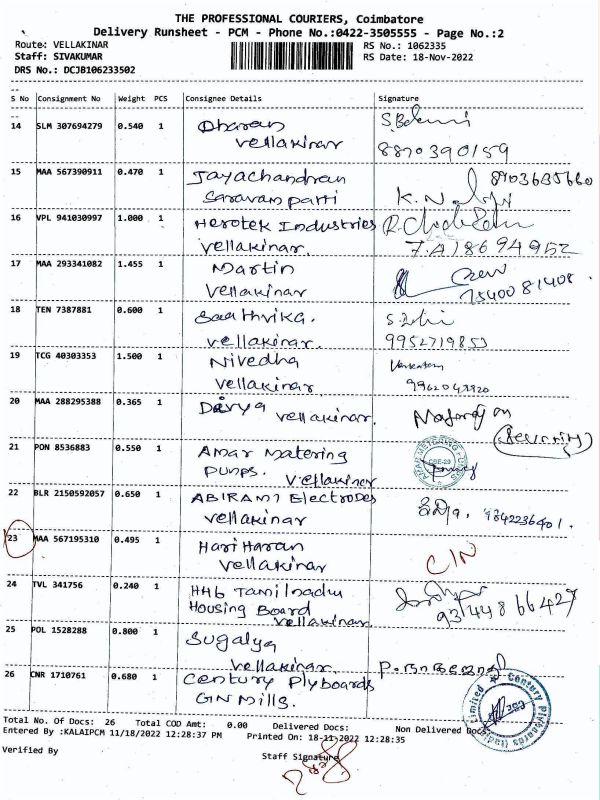 THE PROFESSIONAL COURIERS, Coimbatore
Delivery Runsheet - PCM - Phone No.:0422-3505555 - Page No.:2
Route: VELLAKINAR
RS No.: 1062335
Staff: SIVAKUMAR
RS Date: 18-Nov-2022
DRS No.: DCJB106233502
S No Consignment No Weight PCS Consignee Details Signature
14 SLM 307694279 0.540 1 Dharan
vellakinar
8870390159
15 MAA 567390911 0.470 1 Jayachandran 8903635660
Saravampatti
16 VPL 941030997 1.000 1 Herotek Industries
vellakinar.
17 MAA 293341082 1.455 1 Martin
vellakinar 7540081408.
18 TEN 7387881 0.600 1 Saathvika.
vellakinar. 9952719853
19 TCG 40303353 1.500 1 Nivedha
vellakinar.
20 MAA 288295388 0.365 1 Divya vellakinar.
(Security)
21 PON 8536883 0.550 1 Amar Matering
Pumps. vellakinar
22 BLR 2150592057 0.650 1 ABIRAMI Electrodes
vellakinar 9342236401.
23 MAA 567195310 0.495 1 Hari Haran
vellakinar
C/N
24 TVL 341756 0.240 1 HHB Tamilnadu
Housing Board
vellakinar 9344866427
25 POL 1528288 0.800 1 Sugalya
vellakinar.
26 CNR 1710761 0.680 1 Century Plyboards
GN Mills.
Century Plyboards (India) Limited
Total No. Of Docs: 26 Total COD Amt: 0.00 Delivered Docs: Non Delivered Docs:
Entered By :KALAIPCM 11/18/2022 12:28:37 PM Printed On: 18-11-2022 12:28:35
Verified By
Staff Signature